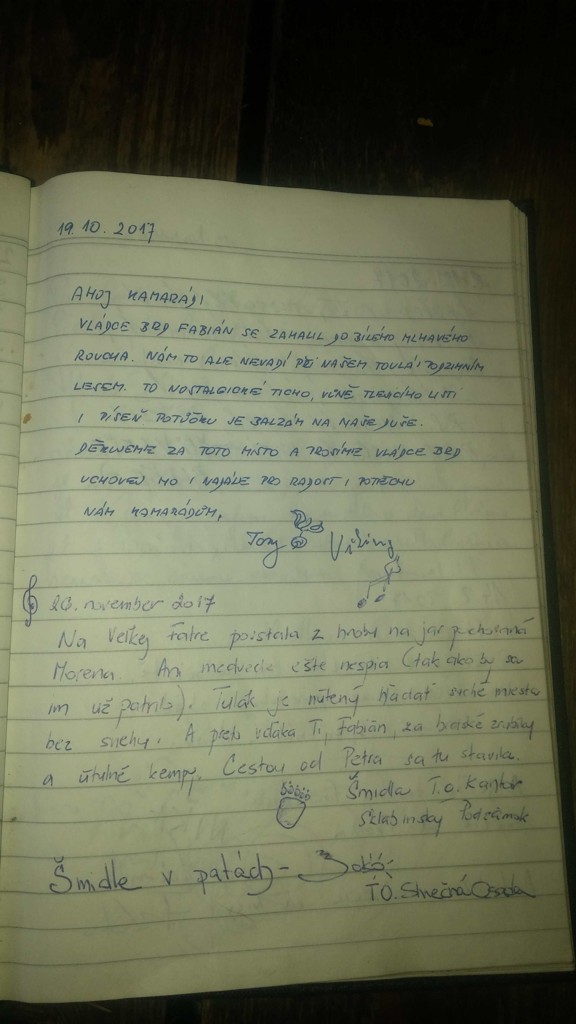 19.10.2017
AHOJ KAMARÁDI
VLÁDCE BRD FABIÁN SE ZAHALIL DO BÍLÉHO MLHAVÉHO
ROUCHA. NÁM TO ALE NEVADÍ PŘI NAŠEM TOULÁNÍ PODZIMNÍM
LESEM. TO NOSTALGICKÉ TICHO, VŮNĚ TLEJÍCÍHO LISTÍ
I PÍSEŇ POTŮČKU JE BALZÁM NA NAŠE DUŠE.
DĚKUJEME ZA TOTO MÍSTO A PROSÍME VLÁDCE BRD
UCHOVEJ HO I NADÁLE PRO RADOST I POTĚCHU
NÁM KAMARÁDŮM.
Tony Viking
november 2017
Na Veľkej Fatre povstala z hrobu na jar pochovaná
Morena. Ani medvede ešte nespia (tak ako by sa
im už patrilo). Tulák je nútený hľadať suché miesta
bez snehu. A preto vďaka Ti, Fabián, za brdské zruby
a útulné kempy. Cestou od Petra sa tu stavila
Šmidla T.O. Kantor
Sklabinský Podzámok
Šmidle v patách - Sokó
T.O. Slnečná Osada